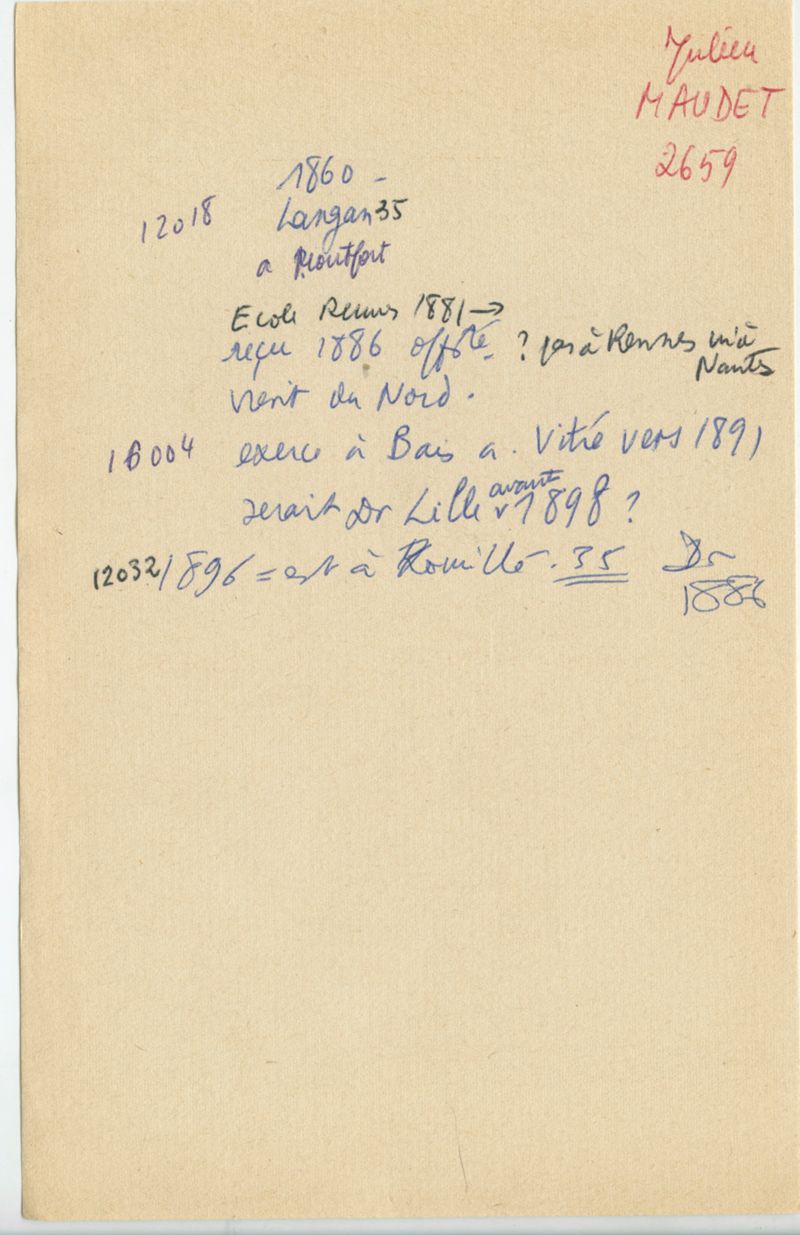 Julien
MAUDET
2659
1860 -
12018 Langan 35
a Montfort
Ecole Rennes 1881 →
reçu 1886 offté. ? pas à Rennes ni à
Nantes
vient du Nord.
16004 exerce à Bais a. Vitré vers 1891
serait Dr Lille avant 1898 ?
12032 1896 = est à Romillé. 35 Dr
1886